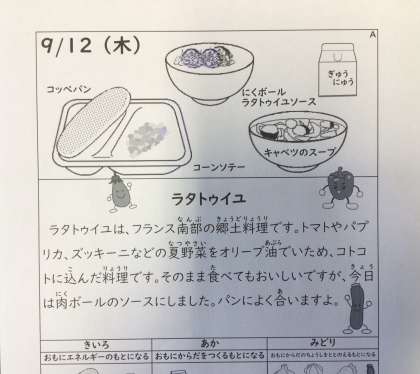 9/12（木）
A
コッペパン
にくボール
ラタトゥイユソース
ぎゅう
にゅう
キャベツのスープ
コーンソテー
ラタトゥイユ
ラタトゥイユは、フランス南部の郷土料理です。トマトやパプ
リカ、ズッキーニなどの夏野菜をオリーブ油でいため、コトコ
トに込んだ料理です。そのまま食べてもおいしいですが、今日
は肉ボールのソースにしました。パンによく合いますよ。
きいろ
あか
みどり
おもにエネルギーのもとになる
おもにからだをつくるもとになる
おもにからだのちょうしをととのえるもとになる